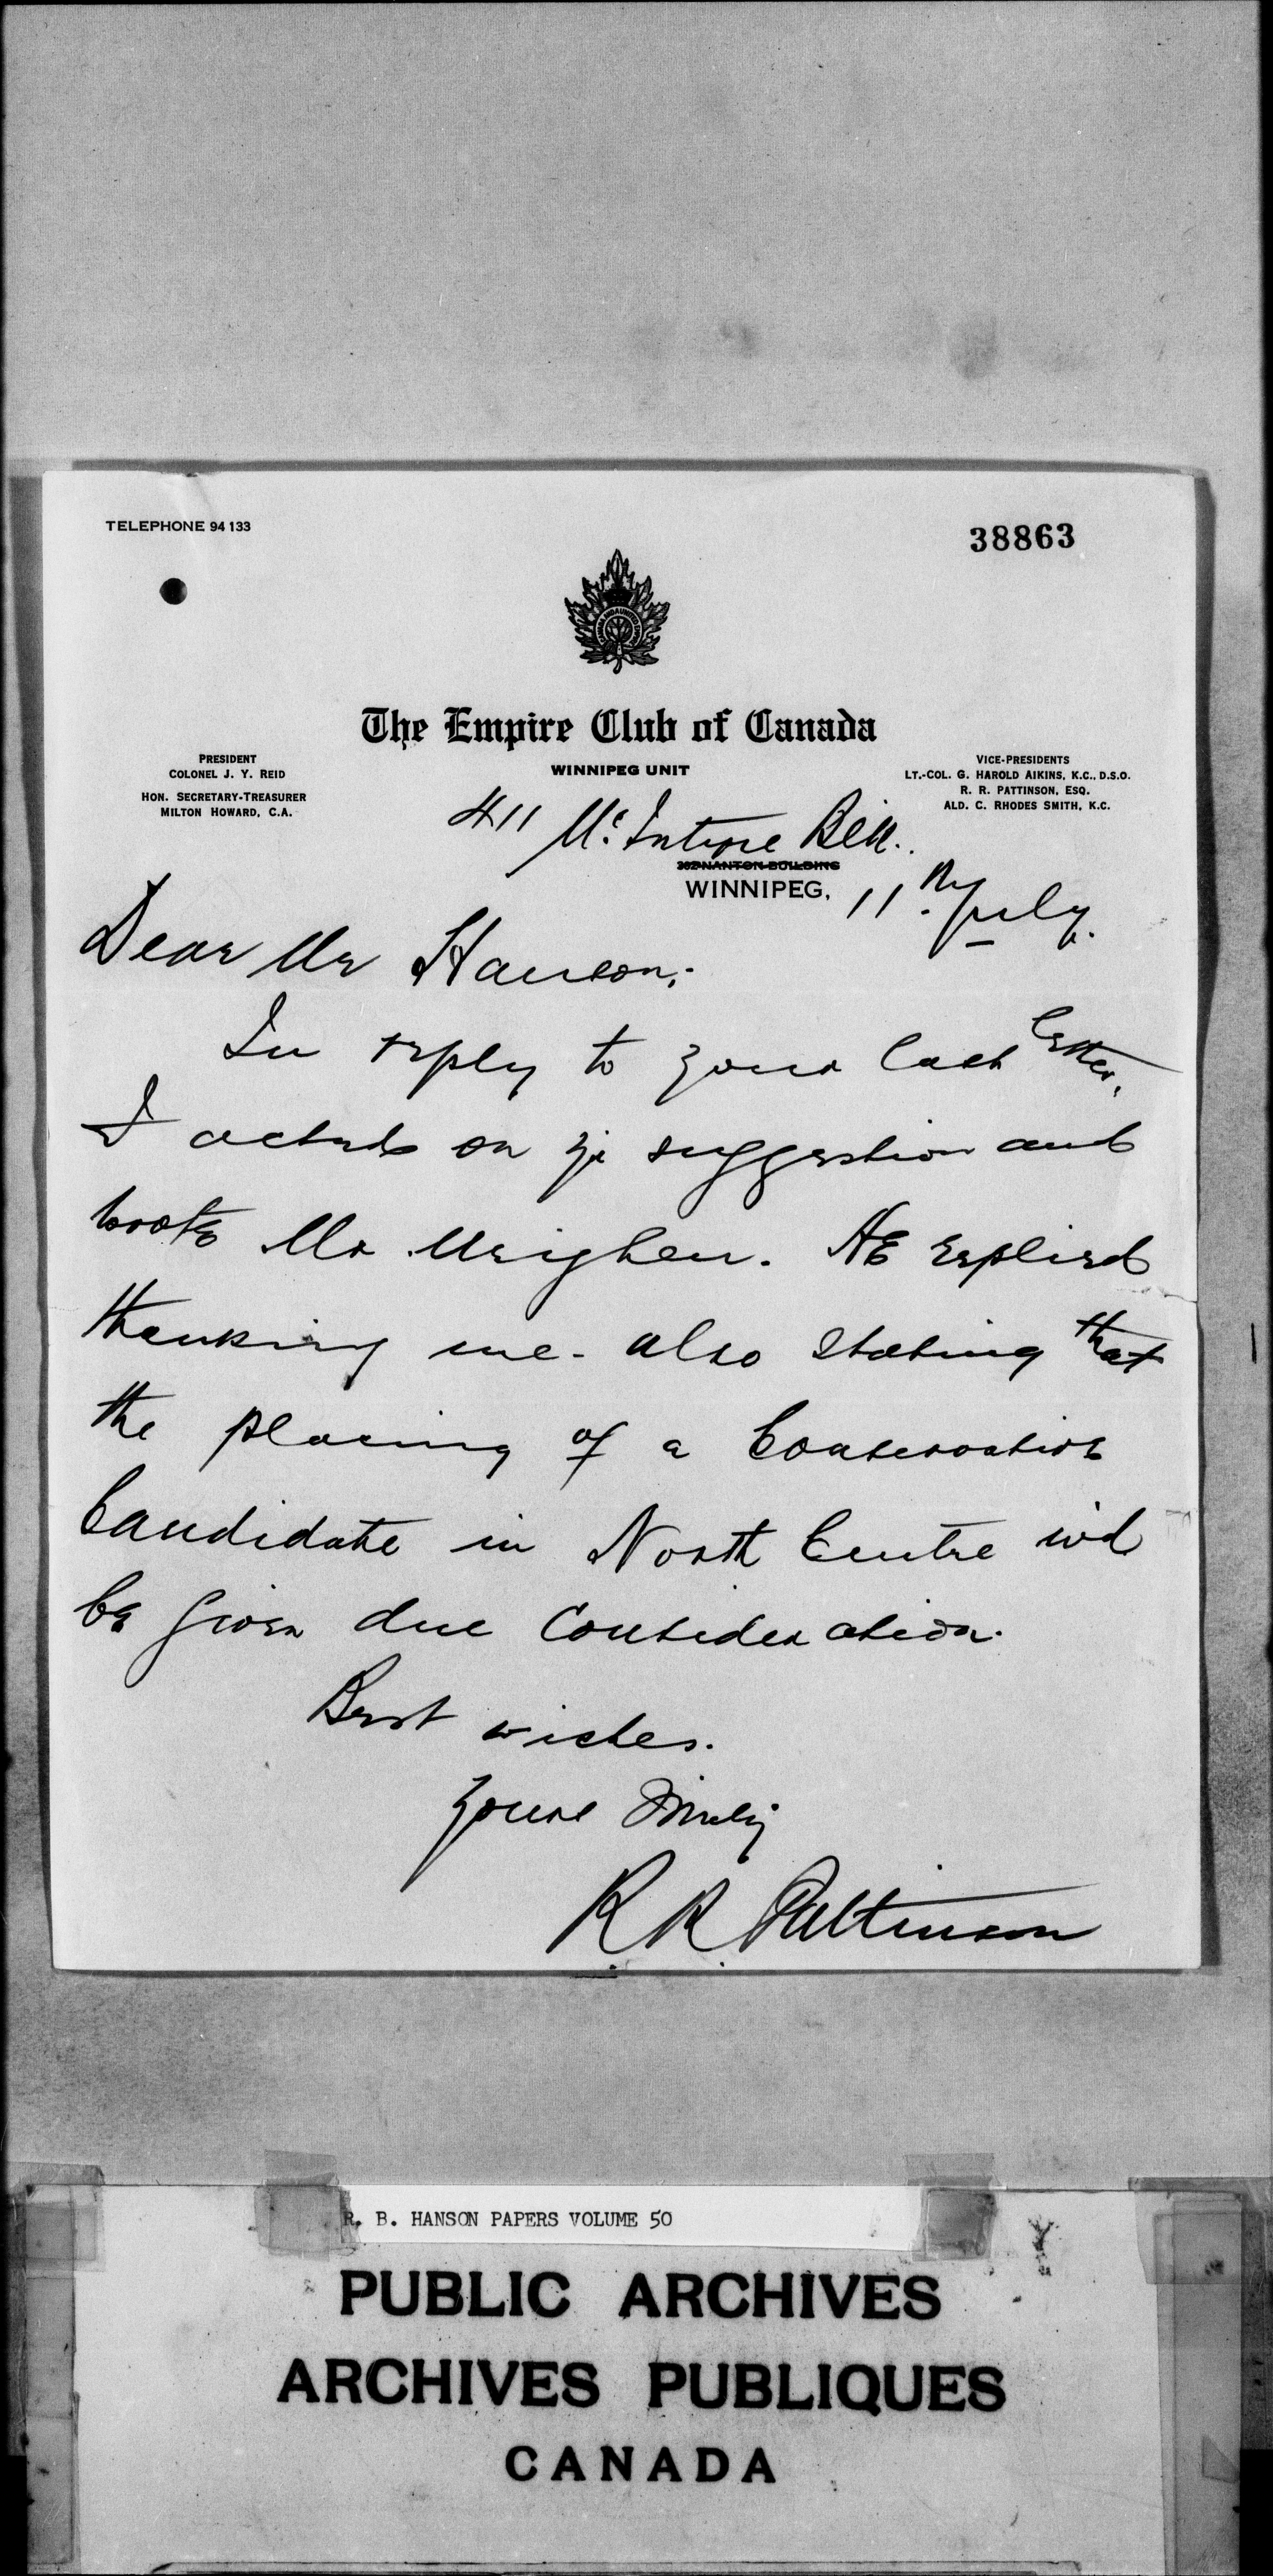 TELEPHONE 94 133
38863
The Empire Club of Canada
WINNIPEG UNIT
PRESIDENT
COLONEL J. Y. REID
HON. SECRETARY-TREASURER
MILTON HOWARD, C.A.
VICE-PRESIDENTS
LT.-COL. G. HAROLD AIKINS, K.C., D.S.O.
R. R. PATTINSON, ESQ.
ALD. C. RHODES SMITH, K.C.
411 McIntyre Blk.
NANTON BUILDING
WINNIPEG, 11th July.
Dear Mr Hanson;-
In reply to your last letter,
I acted on yr suggestion and
wrote Mr Meighen. He replied
thanking me - also stating that
the placing of a Conservative
Candidate in North Centre wd
be given due Consideration.
Best wishes.
Yours
R R Pattinson
R. B. HANSON PAPERS VOLUME 50
PUBLIC ARCHIVES
ARCHIVES PUBLIQUES
CANADA